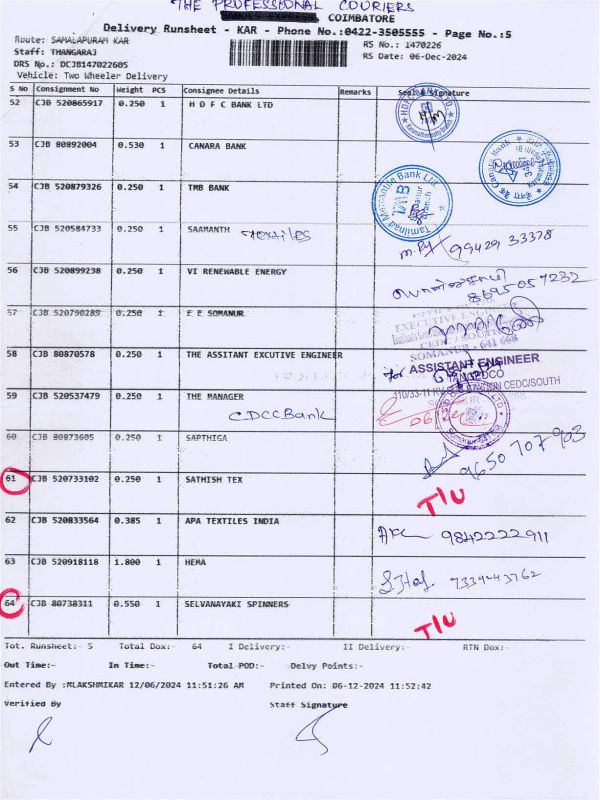 THE PROFESSIONAL COURIERS
COIMBATORE
Delivery Runsheet - KAR - Phone No.:0422-3505555 - Page No.:5
Route: SAMALAPURAM KAR
RS No.: 1470226
Staff: THANGARAJ
RS Date: 06-Dec-2024
DRS No.: DCJB147022605
Vehicle: Two Wheeler Delivery
S No Consignment No Weight PCS Consignee Details Remarks Seal & Signature
52 CJB 520865917 0.250 1 H D F C BANK LTD
53 CJB 80892004 0.530 1 CANARA BANK
54 CJB 520879326 0.250 1 TMB BANK
Tamilnad Mercantile Bank Ltd.
55 CJB 520584733 0.250 1 SAAMANTH Textiles 99429 33378
56 CJB 520899238 0.250 1 VI RENEWABLE ENERGY
8695057232
57 CJB 520790289 0.250 1 E E SOMANUR
EXECUTIVE
CEDC/SOUTH
SOMANUR - 641 668
58 CJB 80870578 0.250 1 THE ASSITANT EXCUTIVE ENGINEER
for ASSISTANT ENGINEER
110/33-11 KV STATION CEDC/SOUTH
59 CJB 520537479 0.250 1 THE MANAGER
CDCC Bank
60 CJB 80873605 0.250 1 SAPTHIGA
9650 707903
61 CJB 520733102 0.250 1 SATHISH TEX
T/U
62 CJB 520833564 0.385 1 APA TEXTILES INDIA
9842222911
63 CJB 520918118 1.800 1 HEMA
7339443762
64 CJB 80738311 0.550 1 SELVANAYAKI SPINNERS
T/U
Tot. Runsheet:- 5 Total Dox:- 64 I Delivery:- II Delivery:- RTN Dox:-
Out Time:- In Time:- Total POD:- Delvy Points:-
Entered By :MLAKSHMIKAR 12/06/2024 11:51:26 AM Printed On: 06-12-2024 11:52:42
Verified By Staff Signature